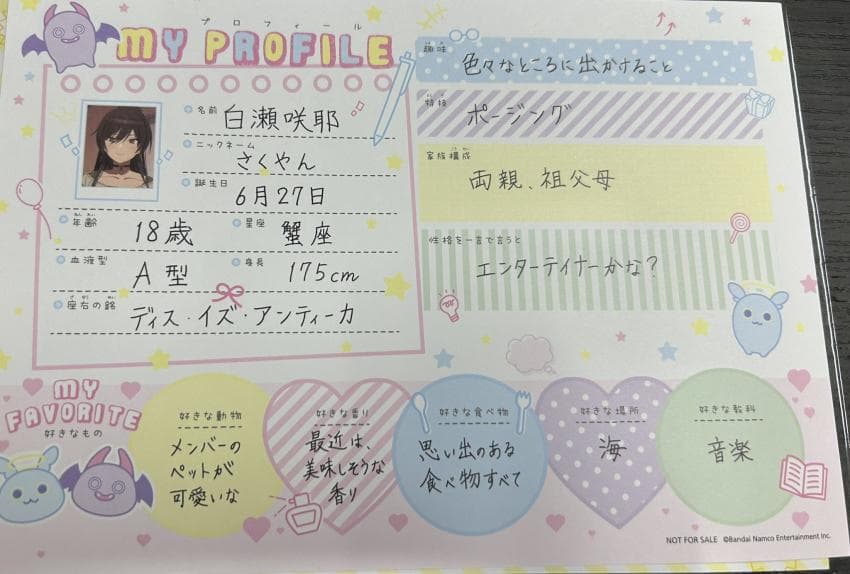 プロフィール
MY PROFILE
名前 白瀬咲耶
ニックネーム さくやん
誕生日 6月27日
年齢 18歳 星座 蟹座
血液型 A型 身長 175cm
座右の銘 ディス・イズ・アンティーカ
趣味 色々なところに出かけること
特技 ポージング
家族構成
両親、祖父母
性格を一言で言うと
エンターテイナーかな?
MY
FAVORITE
好きなもの
好きな動物
メンバーの
ペットが
可愛いな
好きな香り
最近は、
美味しそうな
香り
好きな食べ物
思い出のある
食べ物すべて
好きな場所
海
好きな教科
音楽
NOT FOR SALE ©Bandai Namco Entertainment Inc.